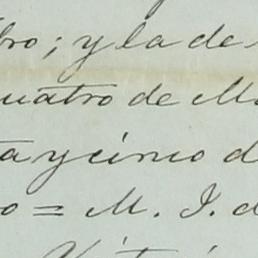 bro; y la de
uatro de M
ta y cinco d
o = M. I. d